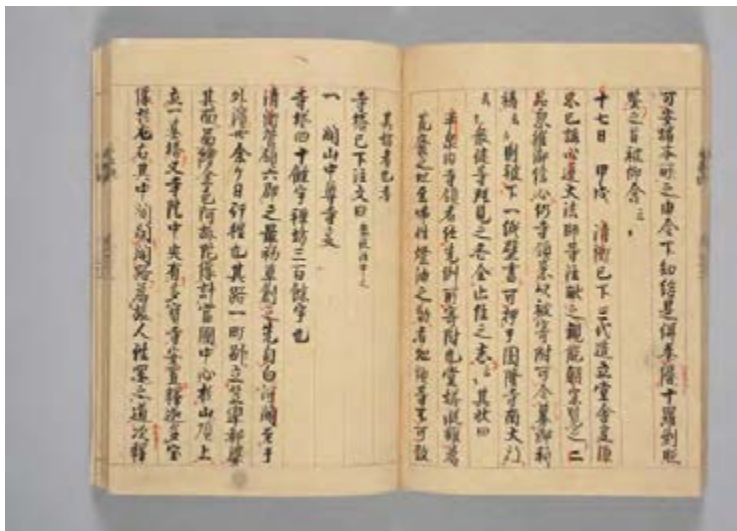 可安堵本所之由令下知給是偏十羅刹照
鑒之旨被仰含云々
十七日　甲戌　清衡已下三代造立堂舎事源
忠已講心蓮大法師等注献之親能朝宗覧之二
品忽催御信心仍寺領悉以被寄附可令募御祈
祷云々則被下一紙壁書可押于圓隆寺南大門
云々衆徒等拝見之各全止住之志云々其状曰
平泉内寺領者任先例所寄附也堂塔縦雖為
荒廢之地至佛性燈油之勤者地頭等不可致
其妨者也者
寺塔已下注文曰衆徒注申之
一　関山中尊寺事
寺塔四十餘宇禅坊三百餘宇也
清衡管領六郡之最初草創之先自白河関至于
外濱廿余ケ日行程也其路一町別立笠率都婆
其面圖繪金色阿弥陀像計當國中心於山頂上
立一基塔又寺院中央有多寳寺安置釋迦多宝
像於左右其中間開関路為旅人往還之道次釋